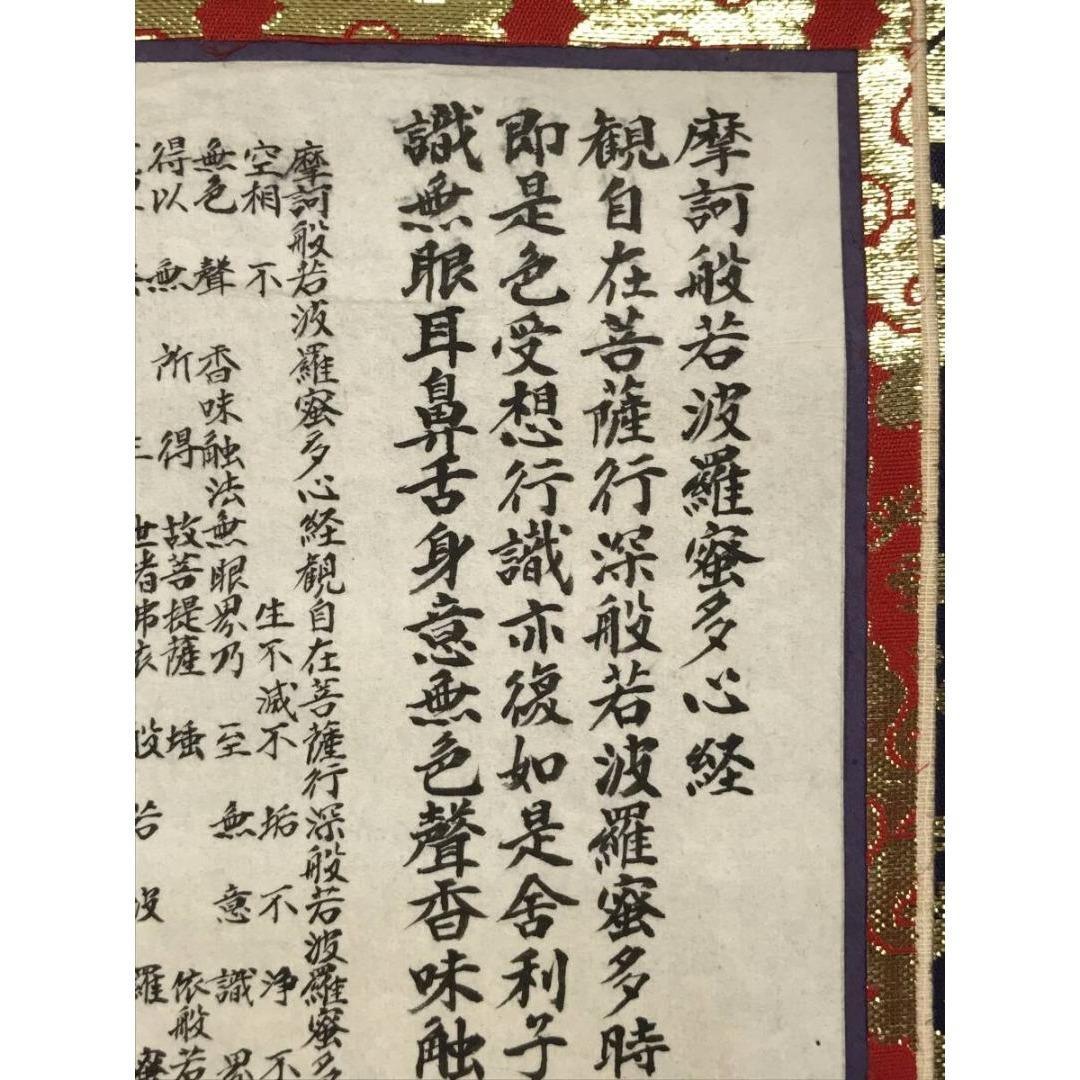 摩訶般若波羅蜜多心経
観自在菩薩行深般若波羅蜜多時
即是色受想行識亦復如是舍利子
識無眼耳鼻舌身意無色聲香味触
摩訶般若波羅蜜多心経観自在菩薩行深般若波羅蜜多
空相不生不滅不垢不浄不
無色聲香味触法無眼界乃至無意識界
得以無所得故菩提薩埵依般若